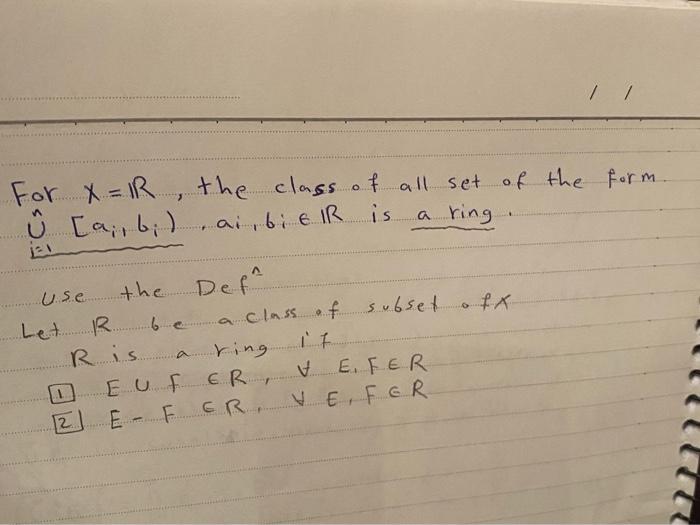 / /
For X = ℝ , the class of all set of the form
n
∪ [ai, bi) , ai, bi ∈ ℝ is a ring .
i=1
use the Def^n
Let R be a class of subset of X
R is a ring if
1 E ∪ F ∈ R, ∀ E, F ∈ R
2 E - F ∈ R, ∀ E, F ∈ R